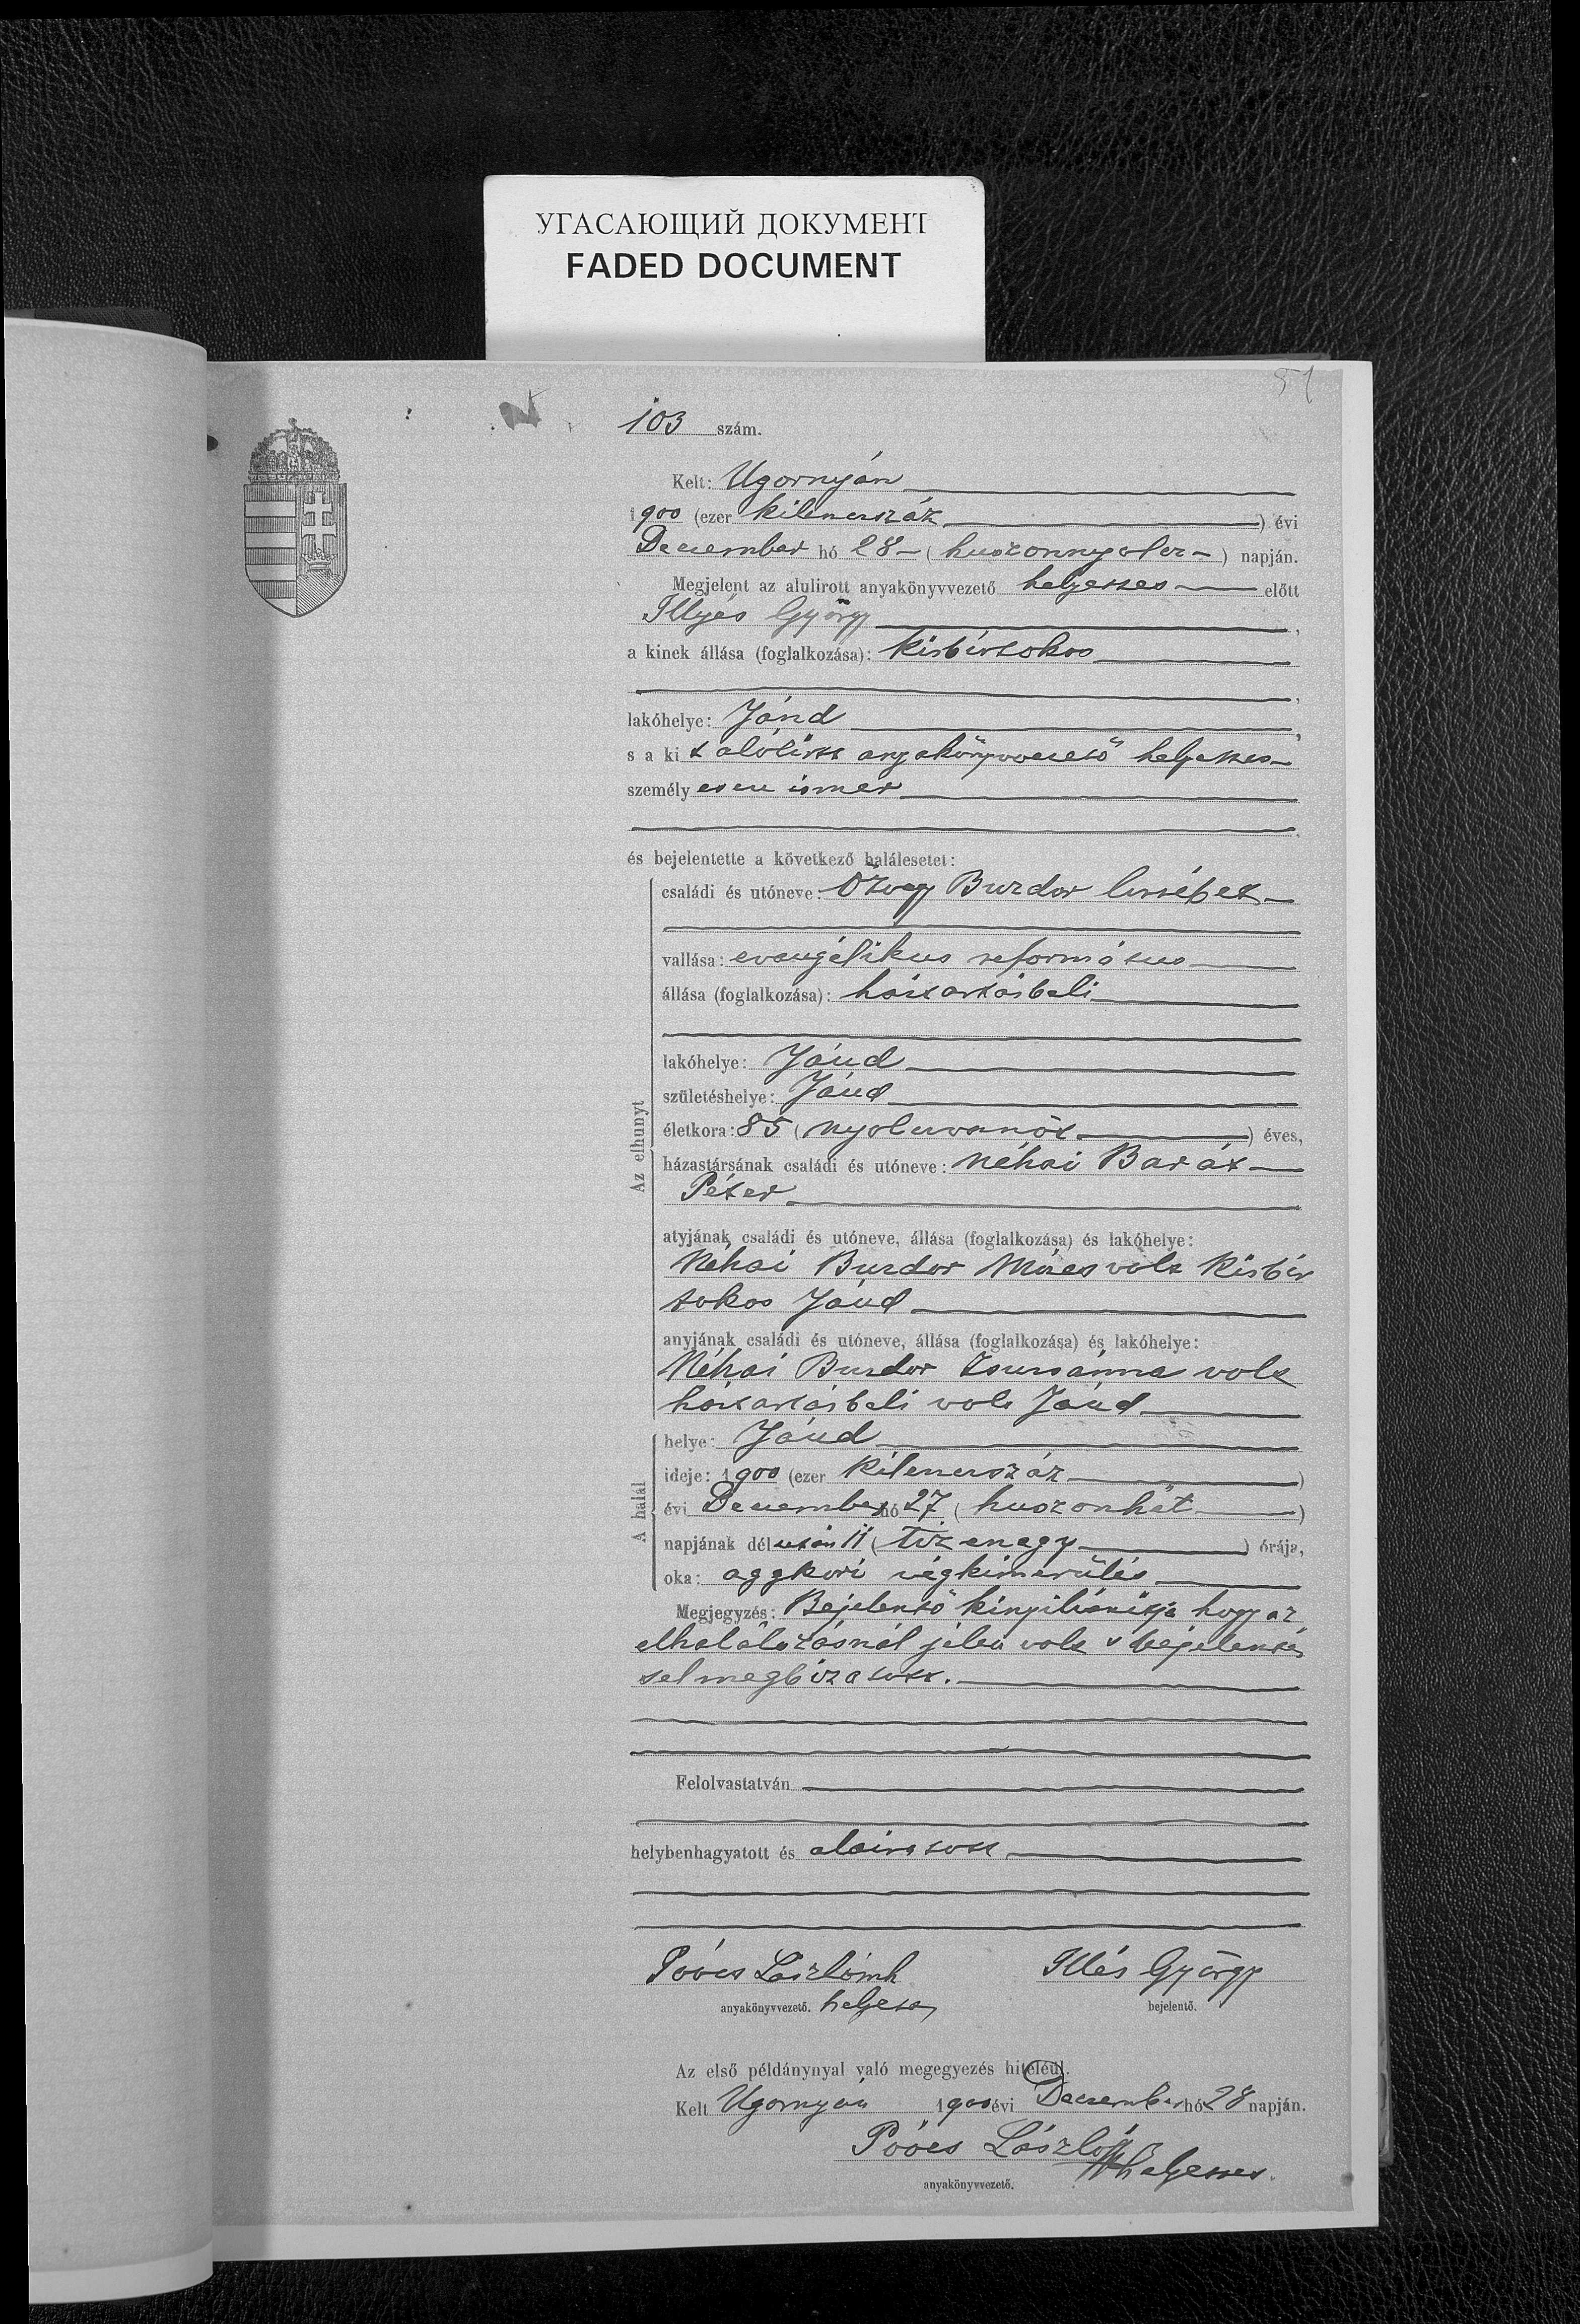 УГАСАЮЩИЙ ДОКУМЕНТ
FADED DOCUMENT
51
103 szám.
Kelt: Ugornyán
1900 (ezer kilenczszáz) évi
December hó 28 - (huszonnyolcz -) napján.
Megjelent az alulirott anyakönyvvezető helyettes előtt
Illyés György,
a kinek állása (foglalkozása): kisbirtokos
lakóhelye: Jánd,
s a kit alólirt anyakönyvvezető helyettes
személyesen ismer
és bejelentette a következő halálesetet:
Az elhunyt
családi és utóneve: Özvegy Buzdor Erzsébet
vallása: evangélikus református
állása (foglalkozása): háztartásbeli
lakóhelye: Jánd
születéshelye: Jánd
életkora: 85 (nyolczvanöt) éves,
házastársának családi és utóneve: néhai Barát
Péter
atyjának családi és utóneve, állása (foglalkozása) és lakóhelye:
Néhai Buzdor volt kisbir
tokos Jánd
anyjának családi és utóneve, állása (foglalkozása) és lakóhelye:
Néhai Buzdor Zsuzsánna volt
háztartásbeli volt Jánd
A halál
helye: Jánd
ideje: 1900 (ezer kilenczszáz)
évi December hó 27 (huszonhét)
napjának délután 11 (tizenegy) órája,
oka: aggkori végkimerülés
Megjegyzés: Bejelentő kinyilvánitja hogy az
elhalálozásnál jelen volt s bejelentés
sel megbizatott.
Felolvastatván
helybenhagyatott és aláiratott
László mk Illés György
anyakönyvvezető. helyettes bejelentő.
Az első példánynyal való megegyezés hiteléűl.
Kelt Ugornyán 1900 évi December hó 28 napján.
László helyettes
anyakönyvvezető.